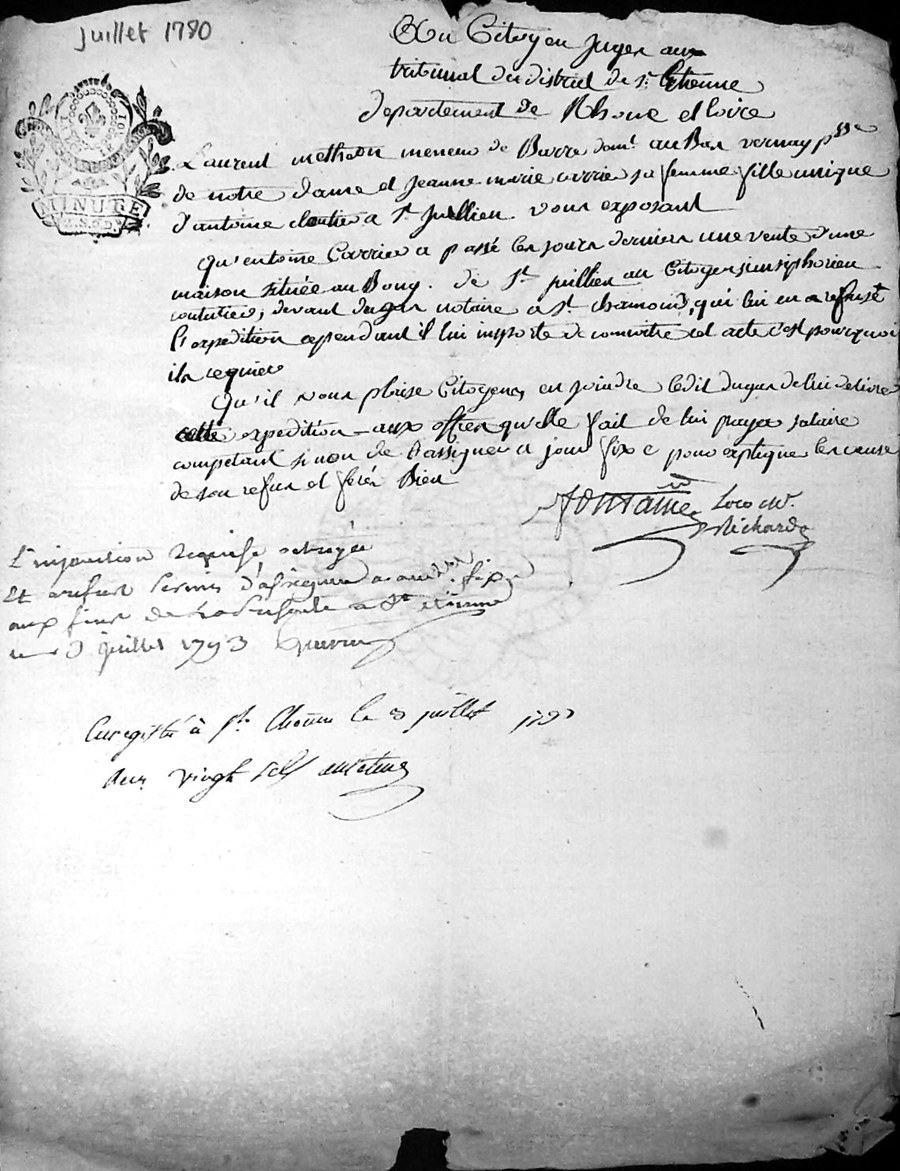 juillet 1780
Aux Citoyens Juges aux
tribunal du district de st. Etienne
departement de Rhone et loire
LA LOI
MINUTE
Laurent mathon meneur de Barre domt. au Ban vernay psse
de notre dame et Jeanne marie carrier sa femme fille unique
d'antoine cloutier a St. Jullien vous exposent
qu'entoine Carrier a passé les jours derniers une vente d'une
maison située au Bourg. de St. jullien au Citoyen simsiphorien
couturier, devant dugas notaire a st. chamond, qui lui en a refusé
l'expedition cependant il lui importe de connoitre cet acte c'est pourquoi
ils requier
Qu'il vous plaise Citoyens, en joindre ledit dugas de lui delivrer
cette expedition aux offres qu'elle fait de lui payer salaire
competant sinon de l'assigner a jour fixe pour expliquer les causes
de son refus et ferés Bien
fontaine Loco Mr.
Richard
L'injonction requise octroyée
Et au refus permis d'assigner a jour fixe
aux fins de la presente a St etienne
le 3 juillet 1793
Enregistré à St. Chamond le 3 juillet 1793
Reçu vingt sols